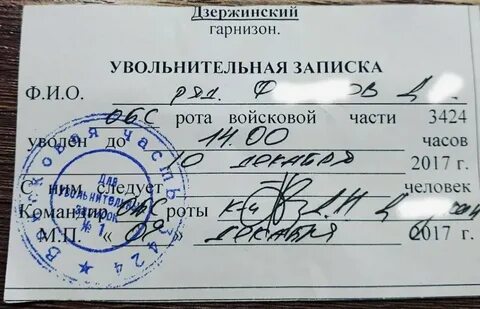 Дзержинский
гарнизон.
УВОЛЬНИТЕЛЬНАЯ ЗАПИСКА
Ф.И.О. ряд.
ОБС рота войсковой части 3424
уволен до 14.00 часов
10 декабря 2017 г.
С ним следует человек
Командир ОБС роты
М.П. « 09 » декабря 2017 г.
Войсковая часть 3424
Для
увольнительных
записок
№ 1